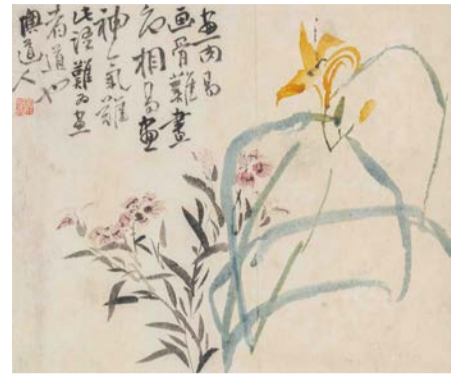 畫肉易
画骨難畫
色相易畫
神氣難
此語難為畫
者道也
懊道人